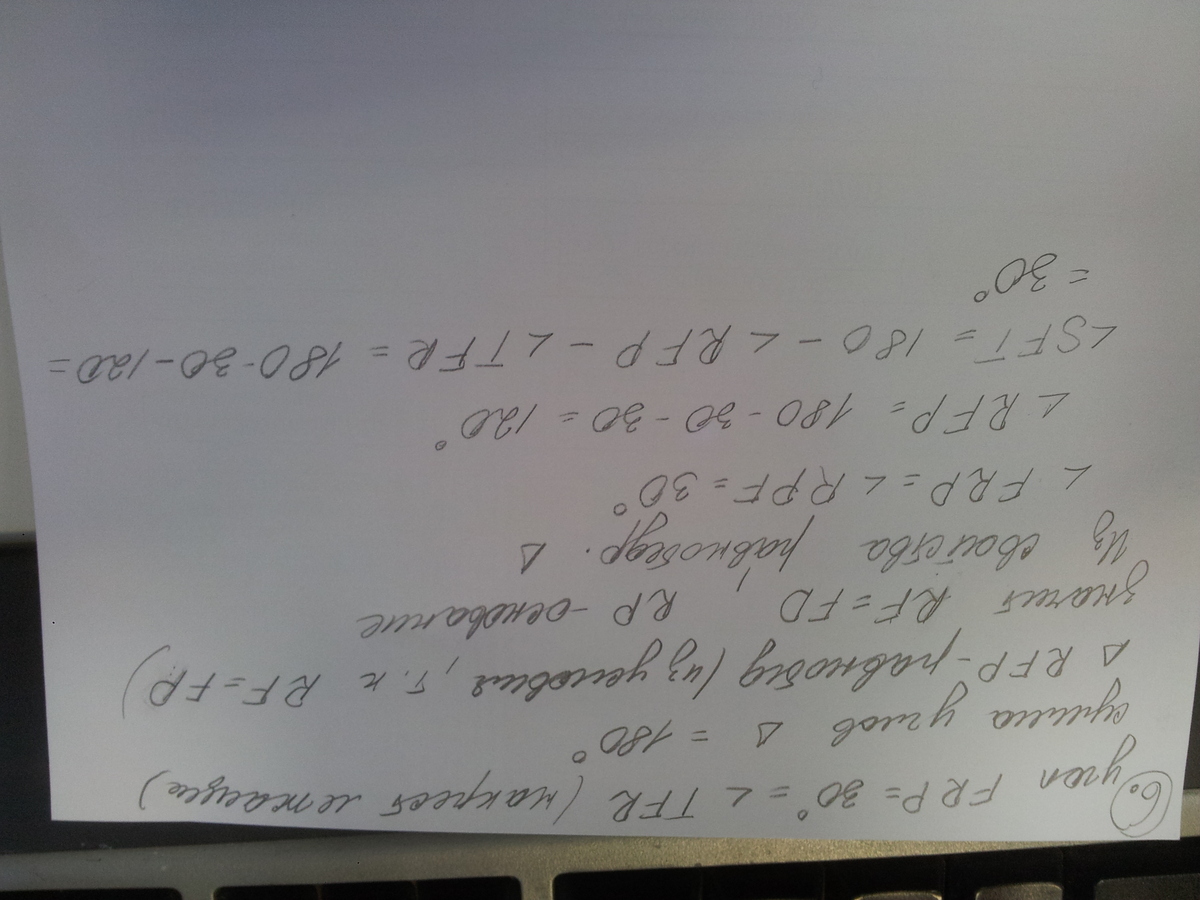 6. угол FRP = 30° = ∠ TFR (накрест лежащие)
сумма углов Δ = 180°
Δ RFP - равнобед (из условия, т.к RF = FP)
значит RF = FD, RP - основание
Из свойства равнобедр. Δ
∠ FRP = ∠ RPF = 30°
∠ RFP = 180 - 30 - 30 = 120°
∠SFT = 180 - ∠ RFP - ∠ TFR = 180 - 30 - 120 =
= 30°